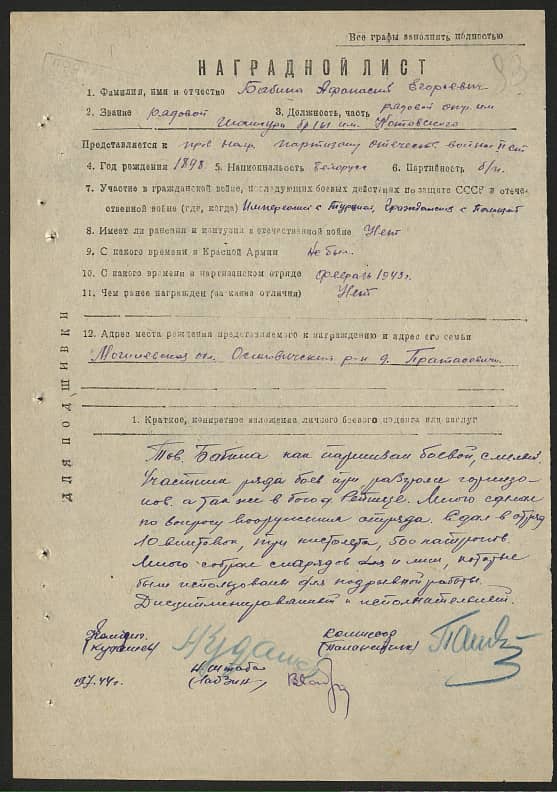 Все графы заполнить полностью
НАГРАДНОЙ ЛИСТ
1. Фамилия, имя и отчество Бабина Афанасий Егорьевич
2. Звание рядовой 3. Должность, часть рядовой отр. им
бр-ды им. Котовского
Представляется к прав. нагр. партизану отечеств. войны II ст
4. Год рождения 1898 5. Национальность белорус 6. Партийность б/п.
7. Участие в гражданской войне, последующих боевых действиях по защите СССР и отече-
ственной войне (где, когда) Империал. с Турцией, Гражданская с Польшей
8. Имеет ли ранения и контузии в отечественной войне Нет
9. С какого времени в Красной Армии Не был.
10. С какого времени в партизанском отряде февраль 1943 г.
11. Чем ранее награжден (за какие отличия) Нет
12. Адрес места рождения представляемого к награждению и адрес его семьи
Могилевская обл. Осиповичский р-н д. Пратасевичи
ДЛЯ ПОДШИВКИ
1. Краткое, конкретное изложение личного боевого подвига или заслуг
Тов. Бабина как партизан боевой, смелый.
Участник ряда боев при разгроме гарнизо-
нов. а так же в бою д. Много сделал
по вопросу вооружения отряда. Сдал в отряд
10 винтовок, три пистолета, 500 патронов.
Много собрал снарядов и мин, которые
были использованы для подрывной работы.
Дисциплинированный и исполнительный.
Командир. комиссар
(Кудашев) Кудашев
Н. Штаба
19.7.44 г. (Лобзин)